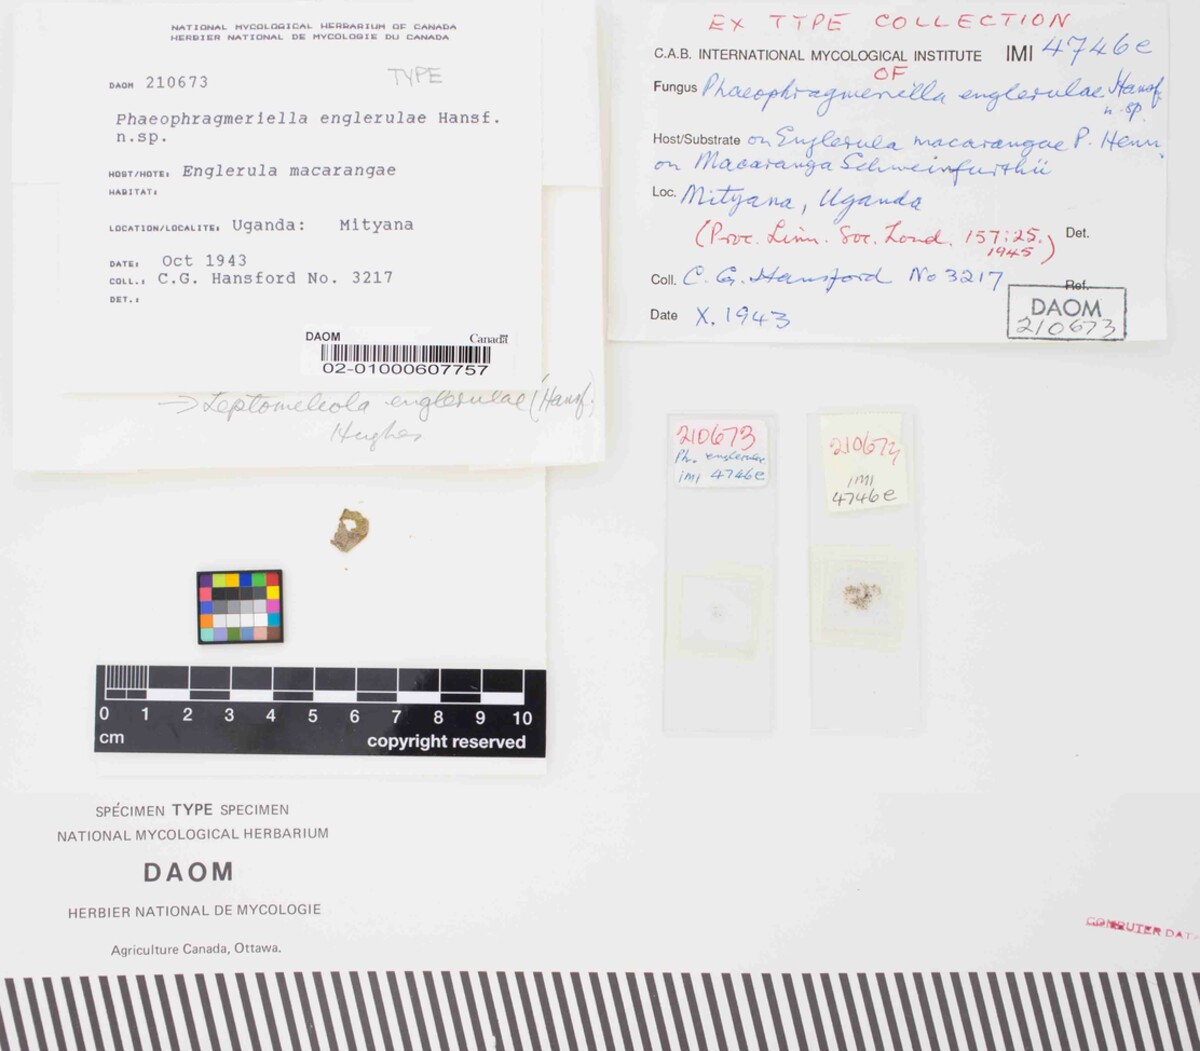 NATIONAL MYCOLOGICAL HERBARIUM OF CANADA
HERBIER NATIONAL DE MYCOLOGIE DU CANADA
DAOM 210673 TYPE
Phaeophragmeriella englerulae Hansf.
n.sp.
HOST/HOTE: Englerula macarangae
HABITAT:
LOCATION/LOCALITE: Uganda: Mityana
DATE: Oct 1943
COLL.: C.G. Hansford No. 3217
DET.:
DAOM Canada
02-01000607757
→ Leptomeliola englerulae (Hansf.)
Hughes
EX TYPE COLLECTION
C.A.B. INTERNATIONAL MYCOLOGICAL INSTITUTE IMI 4746e
OF
Fungus Phaeophragmeriella englerulae Hansf.
n. sp.
Host/Substrate on Englerula macarangae P. Henn.
on Macaranga Schweinfurthii
Loc. Mityana, Uganda
(Proc. Linn. Soc. Lond. 157:25. Det.
1945)
Coll. C. G. Hansford No 3217 Ref.
Date X. 1943
DAOM
210673
210673
Ph. englerulae
IMI 4746e
IMI
4746e
0 1 2 3 4 5 6 7 8 9 10
cm copyright reserved
SPÉCIMEN TYPE SPECIMEN
NATIONAL MYCOLOGICAL HERBARIUM
DAOM
HERBIER NATIONAL DE MYCOLOGIE
Agriculture Canada, Ottawa.
COMPUTER DAT